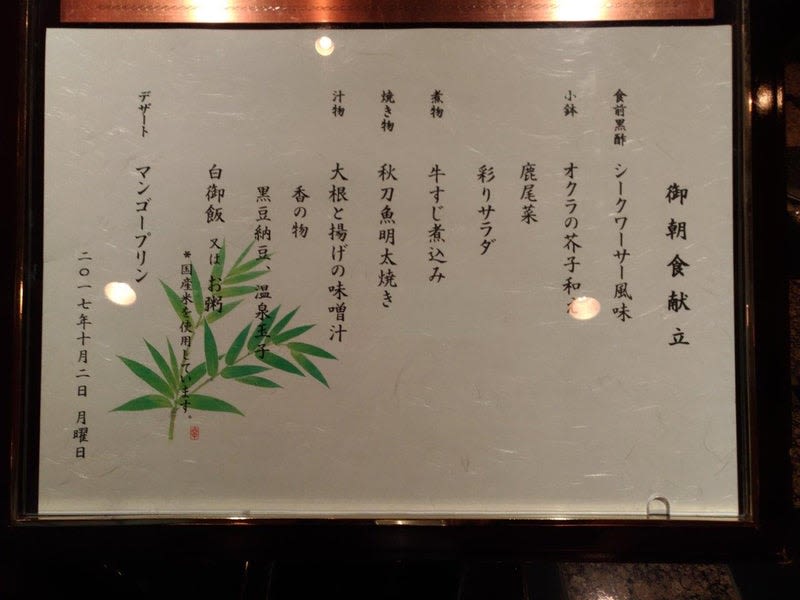 御朝食献立
食前黒酢 シークワーサー風味
小鉢 オクラの芥子和え
鹿尾菜
彩りサラダ
煮物 牛すじ煮込み
焼き物 秋刀魚明太焼き
汁物 大根と揚げの味噌汁
香の物
黒豆納豆、温泉玉子
白御飯 又は お粥
*国産米を使用しています。
デザート マンゴープリン
二〇一七年十月二日 月曜日